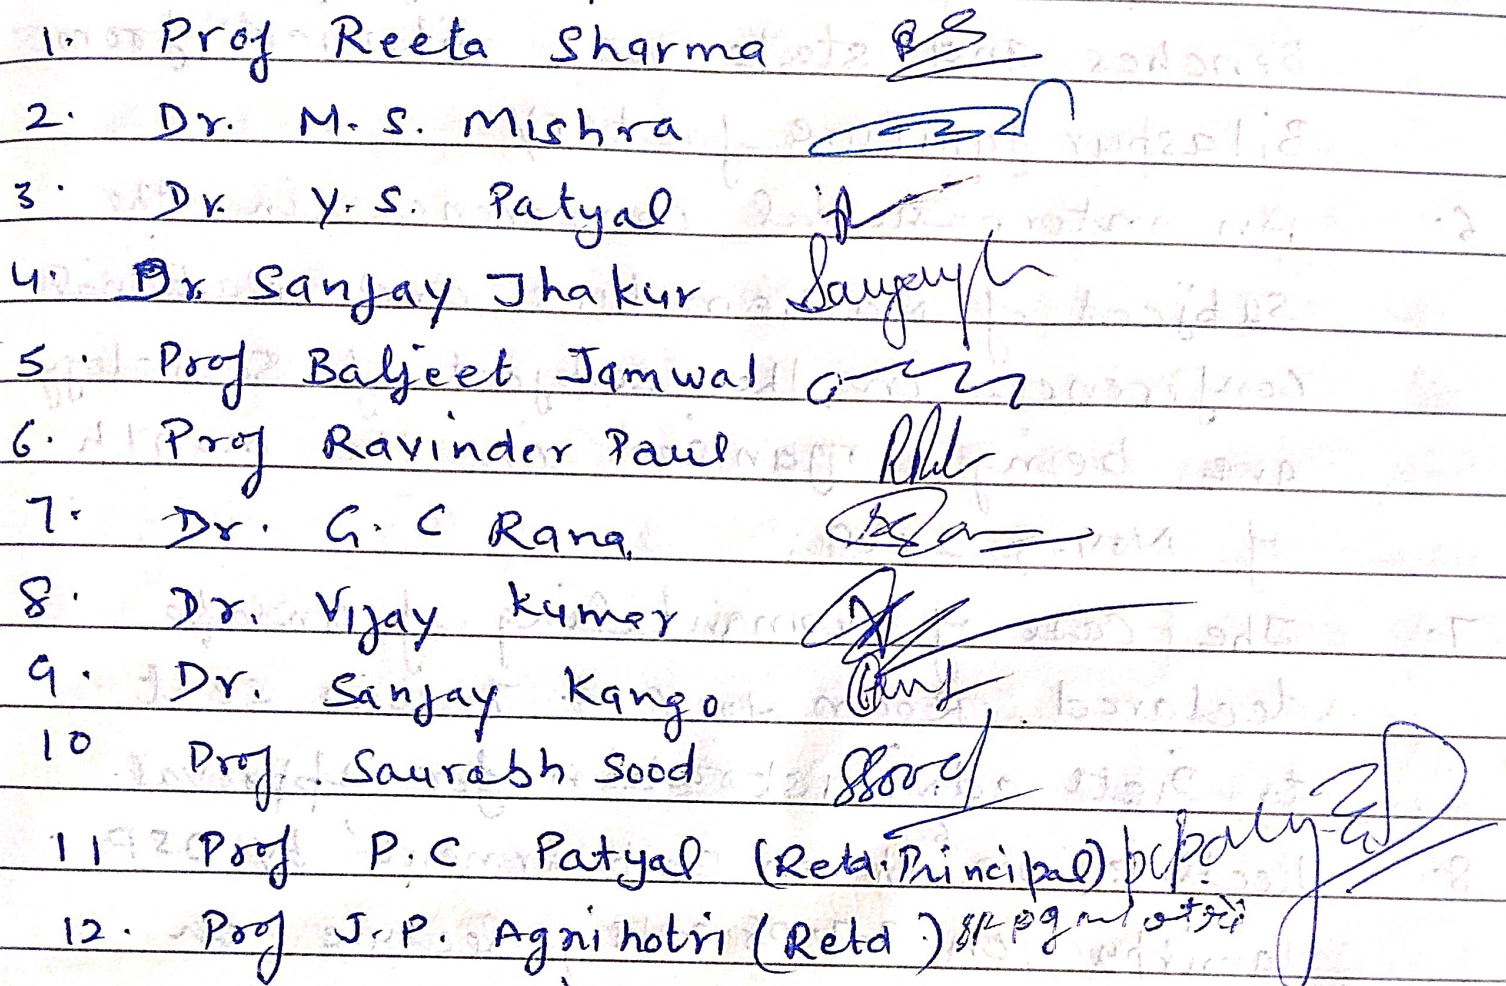 1. Prof Reeta Sharma
2. Dr. M. S. Mishra
3. Dr. Y. S. Patyal
4. Dr. Sanjay Thakur
5. Prof Baljeet Jamwal
6. Prof Ravinder Paul
7. Dr. G. C Rana
8. Dr. Vijay Kumar
9. Dr. Sanjay Kango
10 Prof. Saurabh Sood SSood
11 Prof P. C Patyal (Retd. Principal)
12. Prof J. P. Agnihotri (Retd.)